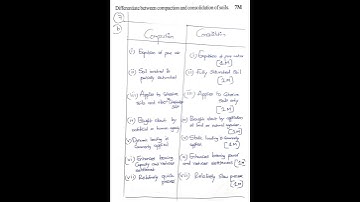 Differentiate between compaction and consolidation of soils. 7M
7
b
Compaction
Consolidation
i) Expulsion of pore air
i) Expulsion of pore water
[1M]
ii) Soil involved is
partially saturated
ii) Fully saturated soil
[1M]
iii) Applies to cohesive
soils and
soil
iii) Applies to cohesive
soils only
[1M]
iv) Bought about by
artificial or human agency
iv) Bought about by application
of load or natural agencies
[1M]
v) Dynamic loading is
commonly applied
v) Static loading is commonly
applied
[1M]
vi) Enhances bearing
capacity and reduces
settlement
vi) Enhances bearing power
and reduces settlement [1M]
vii) Relatively quick
process
vii) Relatively slow process
[1M]